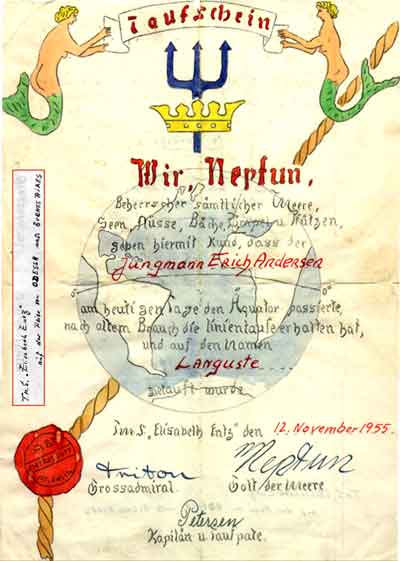 Taufschein
Wir, Neptun,
Beherrscher sämtlicher Meere,
Seen, Flüsse, Bäche, Tümpel u. Pfützen,
geben hiermit Kund, dass der
Jungmann Erich Andersen
am heutigen Tage den Äquator passierte,
nach altem Brauch die Linientaufe erhalten hat,
und auf den Namen
Languste
getauft wurde
TmS „Elisabeth Entz" den 12. November 1955.
Triton Neptun
Grossadmiral. Gott der Meere.
Petersen
Kapitän u. Taufpate.
TmS. „Elisabeth Entz"
auf der Reise von ODESSA nach BUENOS AIRES